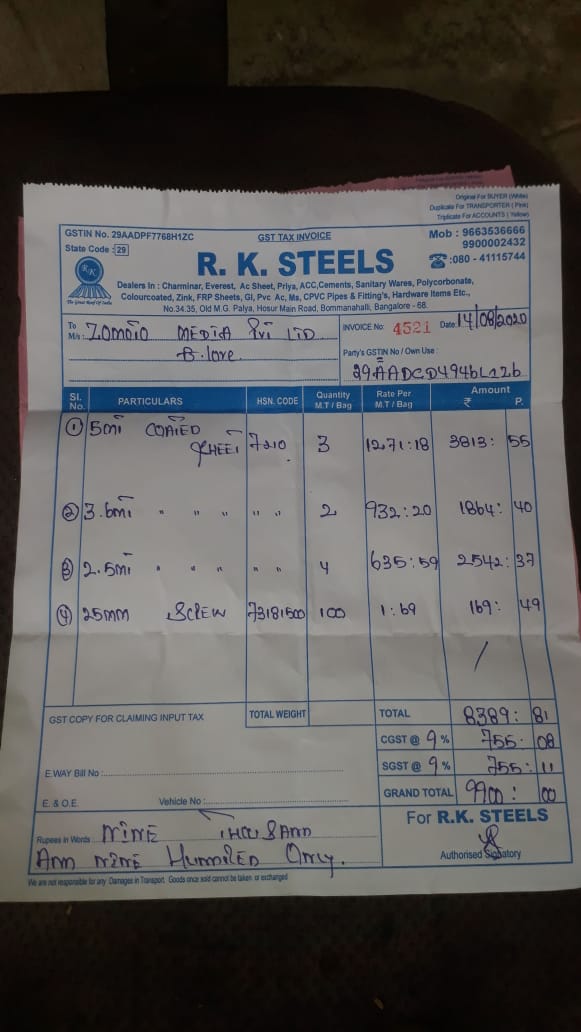 Original For BUYER (White)
Duplicate For TRANSPORTER (Pink)
Triplicate For ACCOUNTS (Yellow)
GSTIN No. 29AADPF7768H1ZC
GST TAX INVOICE
Mob : 9663536666
State Code : 29
9900002432
RK
R. K. STEELS
☎:080 - 41115744
The Great Roof Of India
Dealers In : Charminar, Everest, Ac Sheet, Priya, ACC,Cements, Sanitary Wares, Polycorbonate,
Colourcoated, Zink, FRP Sheets, GI, Pvc Ac, Ms, CPVC Pipes & Fitting's, Hardware Items Etc.,
No.34.35, Old M.G. Palya, Hosur Main Road, Bommanahalli, Bangalore - 68.
To
M/s : ZOMATO MEDIA Pvt LTD
INVOICE No: 4521 Date: 14/08/2020
B.lore.
Party's GSTIN No / Own Use :
29AADCD4946L1Z6
Sl. No. PARTICULARS HSN. CODE Quantity M.T / Bag Rate Per M.T / Bag Amount ₹ P.
① 5mt COATED
SHEET 7210 3 1271:18 3813: 55
② 3.6mt " " " " " 2 932:20 1864: 40
③ 2.5mt " " " " " 4 635:59 2542: 37
④ 25mm SCREW 73181500 100 1:69 169: 49
GST COPY FOR CLAIMING INPUT TAX TOTAL WEIGHT TOTAL 8389: 81
CGST @ 9 % 755. 08
E.WAY Bill No : SGST @ 9 % 755: 11
E. & O.E. Vehicle No : GRAND TOTAL 9900: 00
Rupees in Words : NINE THOUSAND
AND NINE HUNDRED ONLY.
For R.K. STEELS
Authorised Signatory
We are not responsible for any Damages in Transport. Goods once sold cannot be taken or exchanged